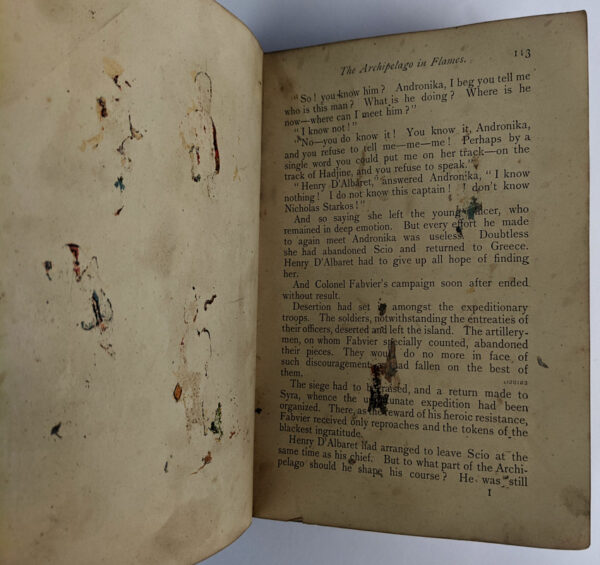 The Archipelago in Flames. 113
"So! you know him? Andronika, I beg you tell me
who is this man? What is he doing? Where is he
now—where can I meet him?"
"I know not!"
"No—you do know it! You know it, Andronika,
and you refuse to tell me—me—me! Perhaps by a
single word you could put me on her track—on the
track of Hadjine, and you refuse to speak."
"Henry D'Albaret," answered Andronika, "I know
nothing! I do not know this captain! I don't know
Nicholas Starkos!"
And so saying she left the young officer, who
remained in deep emotion. But every effort he made
to again meet Andronika was useless. Doubtless
she had abandoned Scio and returned to Greece.
Henry D'Albaret had to give up all hope of finding
her.
And Colonel Fabvier's campaign soon after ended
without result.
Desertion had set in amongst the expeditionary
troops. The soldiers, notwithstanding the entreaties of
their officers, deserted and left the island. The artillery-
men, on whom Fabvier specially counted, abandoned
their pieces. They would do no more in face of
such discouragement had fallen on the best of
them.
The siege had to be raised, and a return made to
Syra, whence the unfortunate expedition had been
organized. There, as the reward of his heroic resistance,
Fabvier received only reproaches and the tokens of the
blackest ingratitude.
Henry D'Albaret had arranged to leave Scio at the
same time as his chief. But to what part of the Archi-
pelago should he shape his course? He was still
I